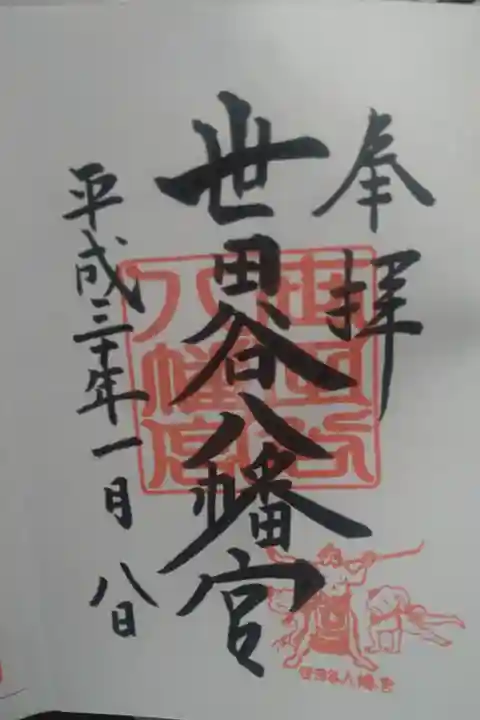 奉拝
世田谷八幡宮
平成三十年一月八日
世田谷八幡宮
世田谷八幡宮